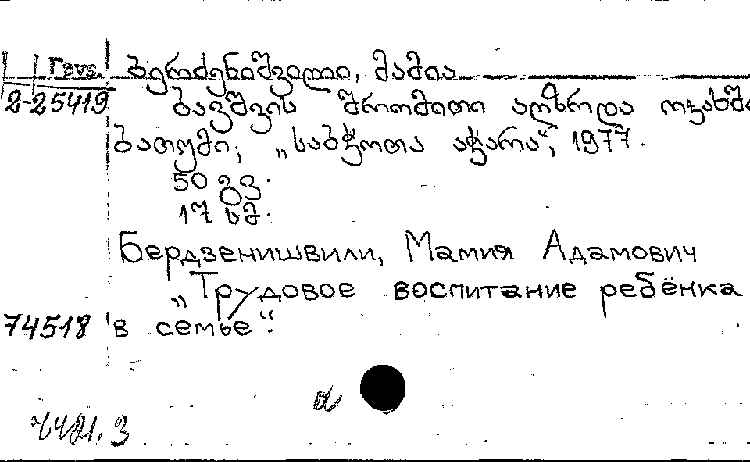 ბერძენიშვილი, მამია
2-25419 ბავშვის შრომითი აღზრდა ოჯახში
ბათუმი, „საბჭოთა აჭარა“, 1977.
50 გვ.
17 სმ.
Бердзенишвили, Мамия Адамович
„Трудовое воспитание ребёнка
74518 в семье“.